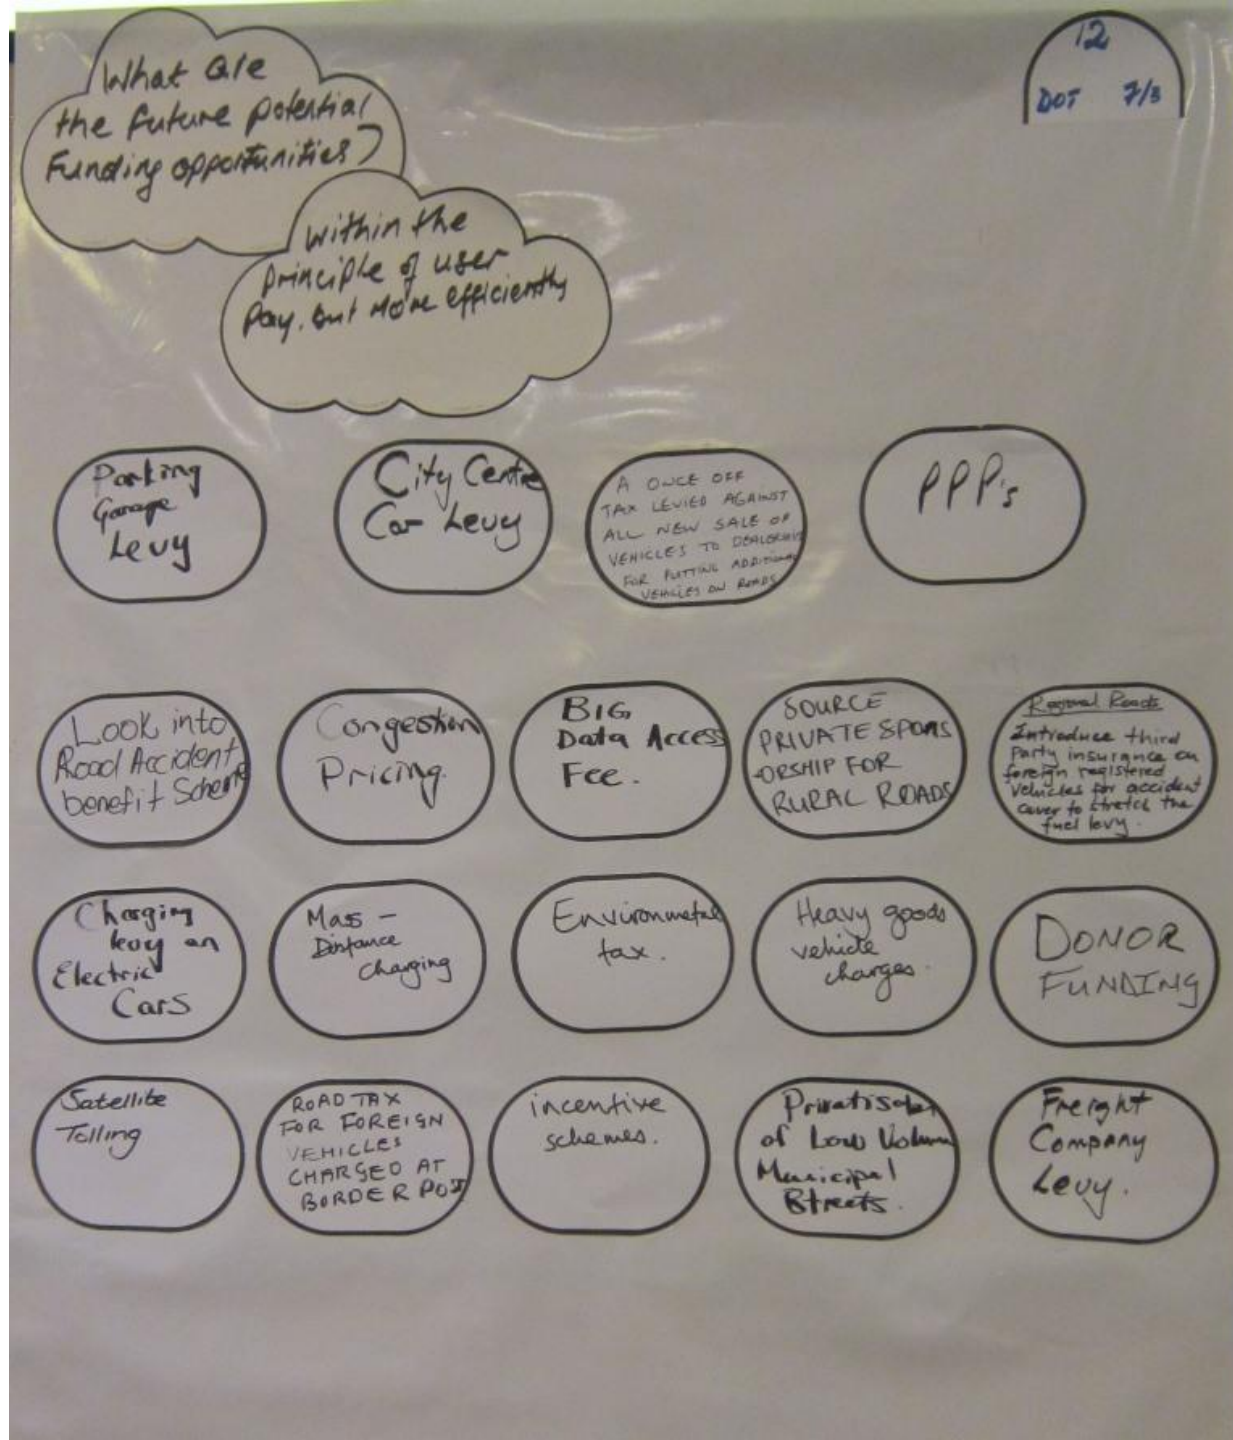 What are
the future potential
Funding opportunities?
within the
principle of user
pay. but more efficiently
12
DOT 7/3
Parking
Garage
Levy
City Centre
Car Levy
A ONCE OFF
TAX LEVIED AGAINST
ALL NEW SALE OF
VEHICLES TO DEALERSHIP
FOR PUTTING ADDITIONAL
VEHICLES ON ROADS
PPP's
Look into
Road Accident
benefit Scheme
Congestion
Pricing.
BIG
Data Access
Fee.
SOURCE
PRIVATE SPONS
-ORSHIP FOR
RURAL ROADS
Regional Roads
Introduce third
party insurance on
foreign registered
vehicles for accident
cover to stretch the
fuel levy.
Charging
levy on
Electric
Cars
Mass -
Distance
Charging
Environmetal
tax.
Heavy goods
vehicle
charges.
DONOR
FUNDING
Satellite
Tolling
ROAD TAX
FOR FOREIGN
VEHICLES
CHARGED AT
BORDER POST
incentive
schemes.
Privatisation
of Low Volume
Municipal
Streets.
Freight
Company
Levy.